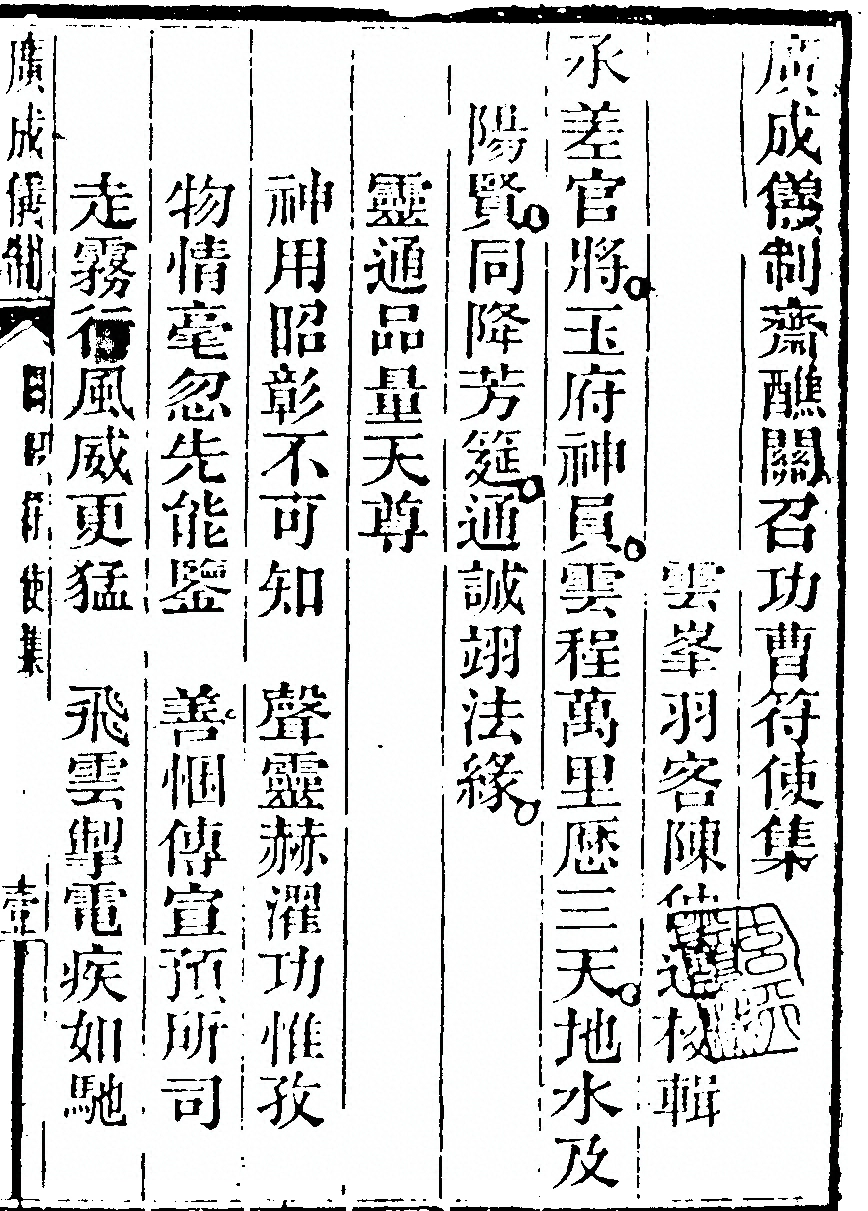 廣成儀制齋醮關召功曹符使集
雲峯羽客陳仲遠校輯
承差官將玉府神員雲程萬里歷三天地水及
陽賢同降芳筵通誠翊法緣
靈通品量天尊
神用昭彰不可知 聲靈赫濯功惟孜
物情毫忽先能鑒 善悃傳宣預所司
走霧行風威更猛 飛雲掣電疾如馳
廣成儀制 關召符使集 壹